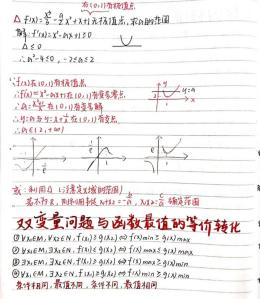 在(0,1)有极值点
△ f(x)=x³/3-a/2x²+x+1无极值点, 求a的范围
解: f'(x)=x²-ax+1≥0
△≤0
∴a²-4≤0, -2≤a≤2
∵f(x)在(0,1)有极值点
∴f'(x)=x²-ax+1在(0,1)有变号零点
∴a=在(0,1)有变号解
y=a
∴y=a与y=x+1/x在(0,1)有交点
∴a∈(2,+∞)
双变量问题与函数最值的等价转化
① ∀x₁∈M, ∀x₂∈N, f(x₁)≥g(x₂) ⇔ f(x)min≥g(x)max
② ∀x₁∈M, ∃x₂∈N, f(x₁)≥g(x₂) ⇔ f(x)min≥g(x)min
③ ∃x₁∈M, ∀x₂∈N, f(x₁)≥g(x₂) ⇔ f(x)max≥g(x)max
④ ∃x₁∈M, ∃x₂∈N, f(x₁)≥g(x₂) ⇔ f(x)max≥g(x)min
条件相同, 最值不同, 条件不同, 最值相同